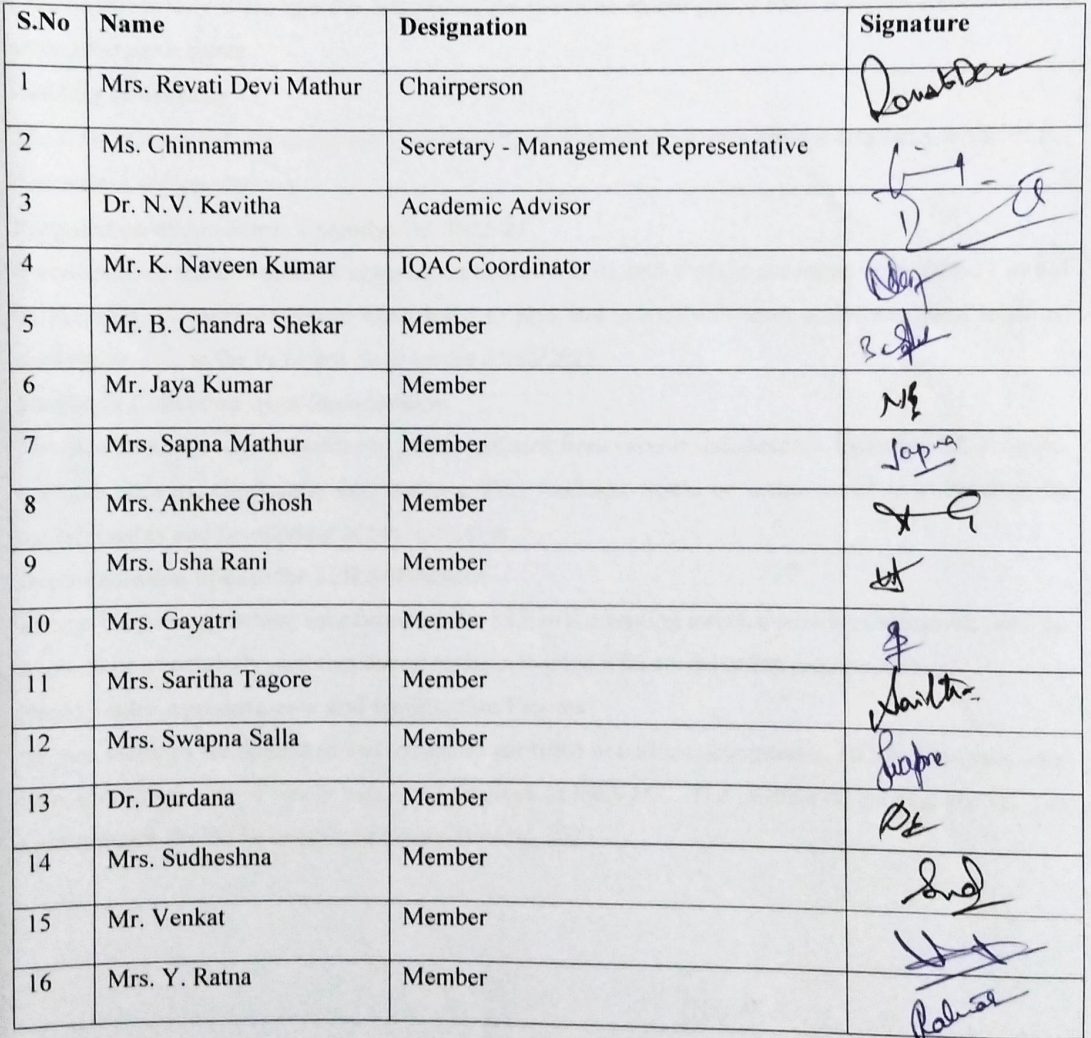 S.No Name Designation Signature
1 Mrs. Revati Devi Mathur Chairperson
2 Ms. Chinnamma Secretary - Management Representative
3 Dr. N.V. Kavitha Academic Advisor
4 Mr. K. Naveen Kumar IQAC Coordinator
5 Mr. B. Chandra Shekar Member
6 Mr. Jaya Kumar Member
7 Mrs. Sapna Mathur Member Sapna
8 Mrs. Ankhee Ghosh Member
9 Mrs. Usha Rani Member
10 Mrs. Gayatri Member
11 Mrs. Saritha Tagore Member
12 Mrs. Swapna Salla Member
13 Dr. Durdana Member
14 Mrs. Sudheshna Member
15 Mr. Venkat Member
16 Mrs. Y. Ratna Member